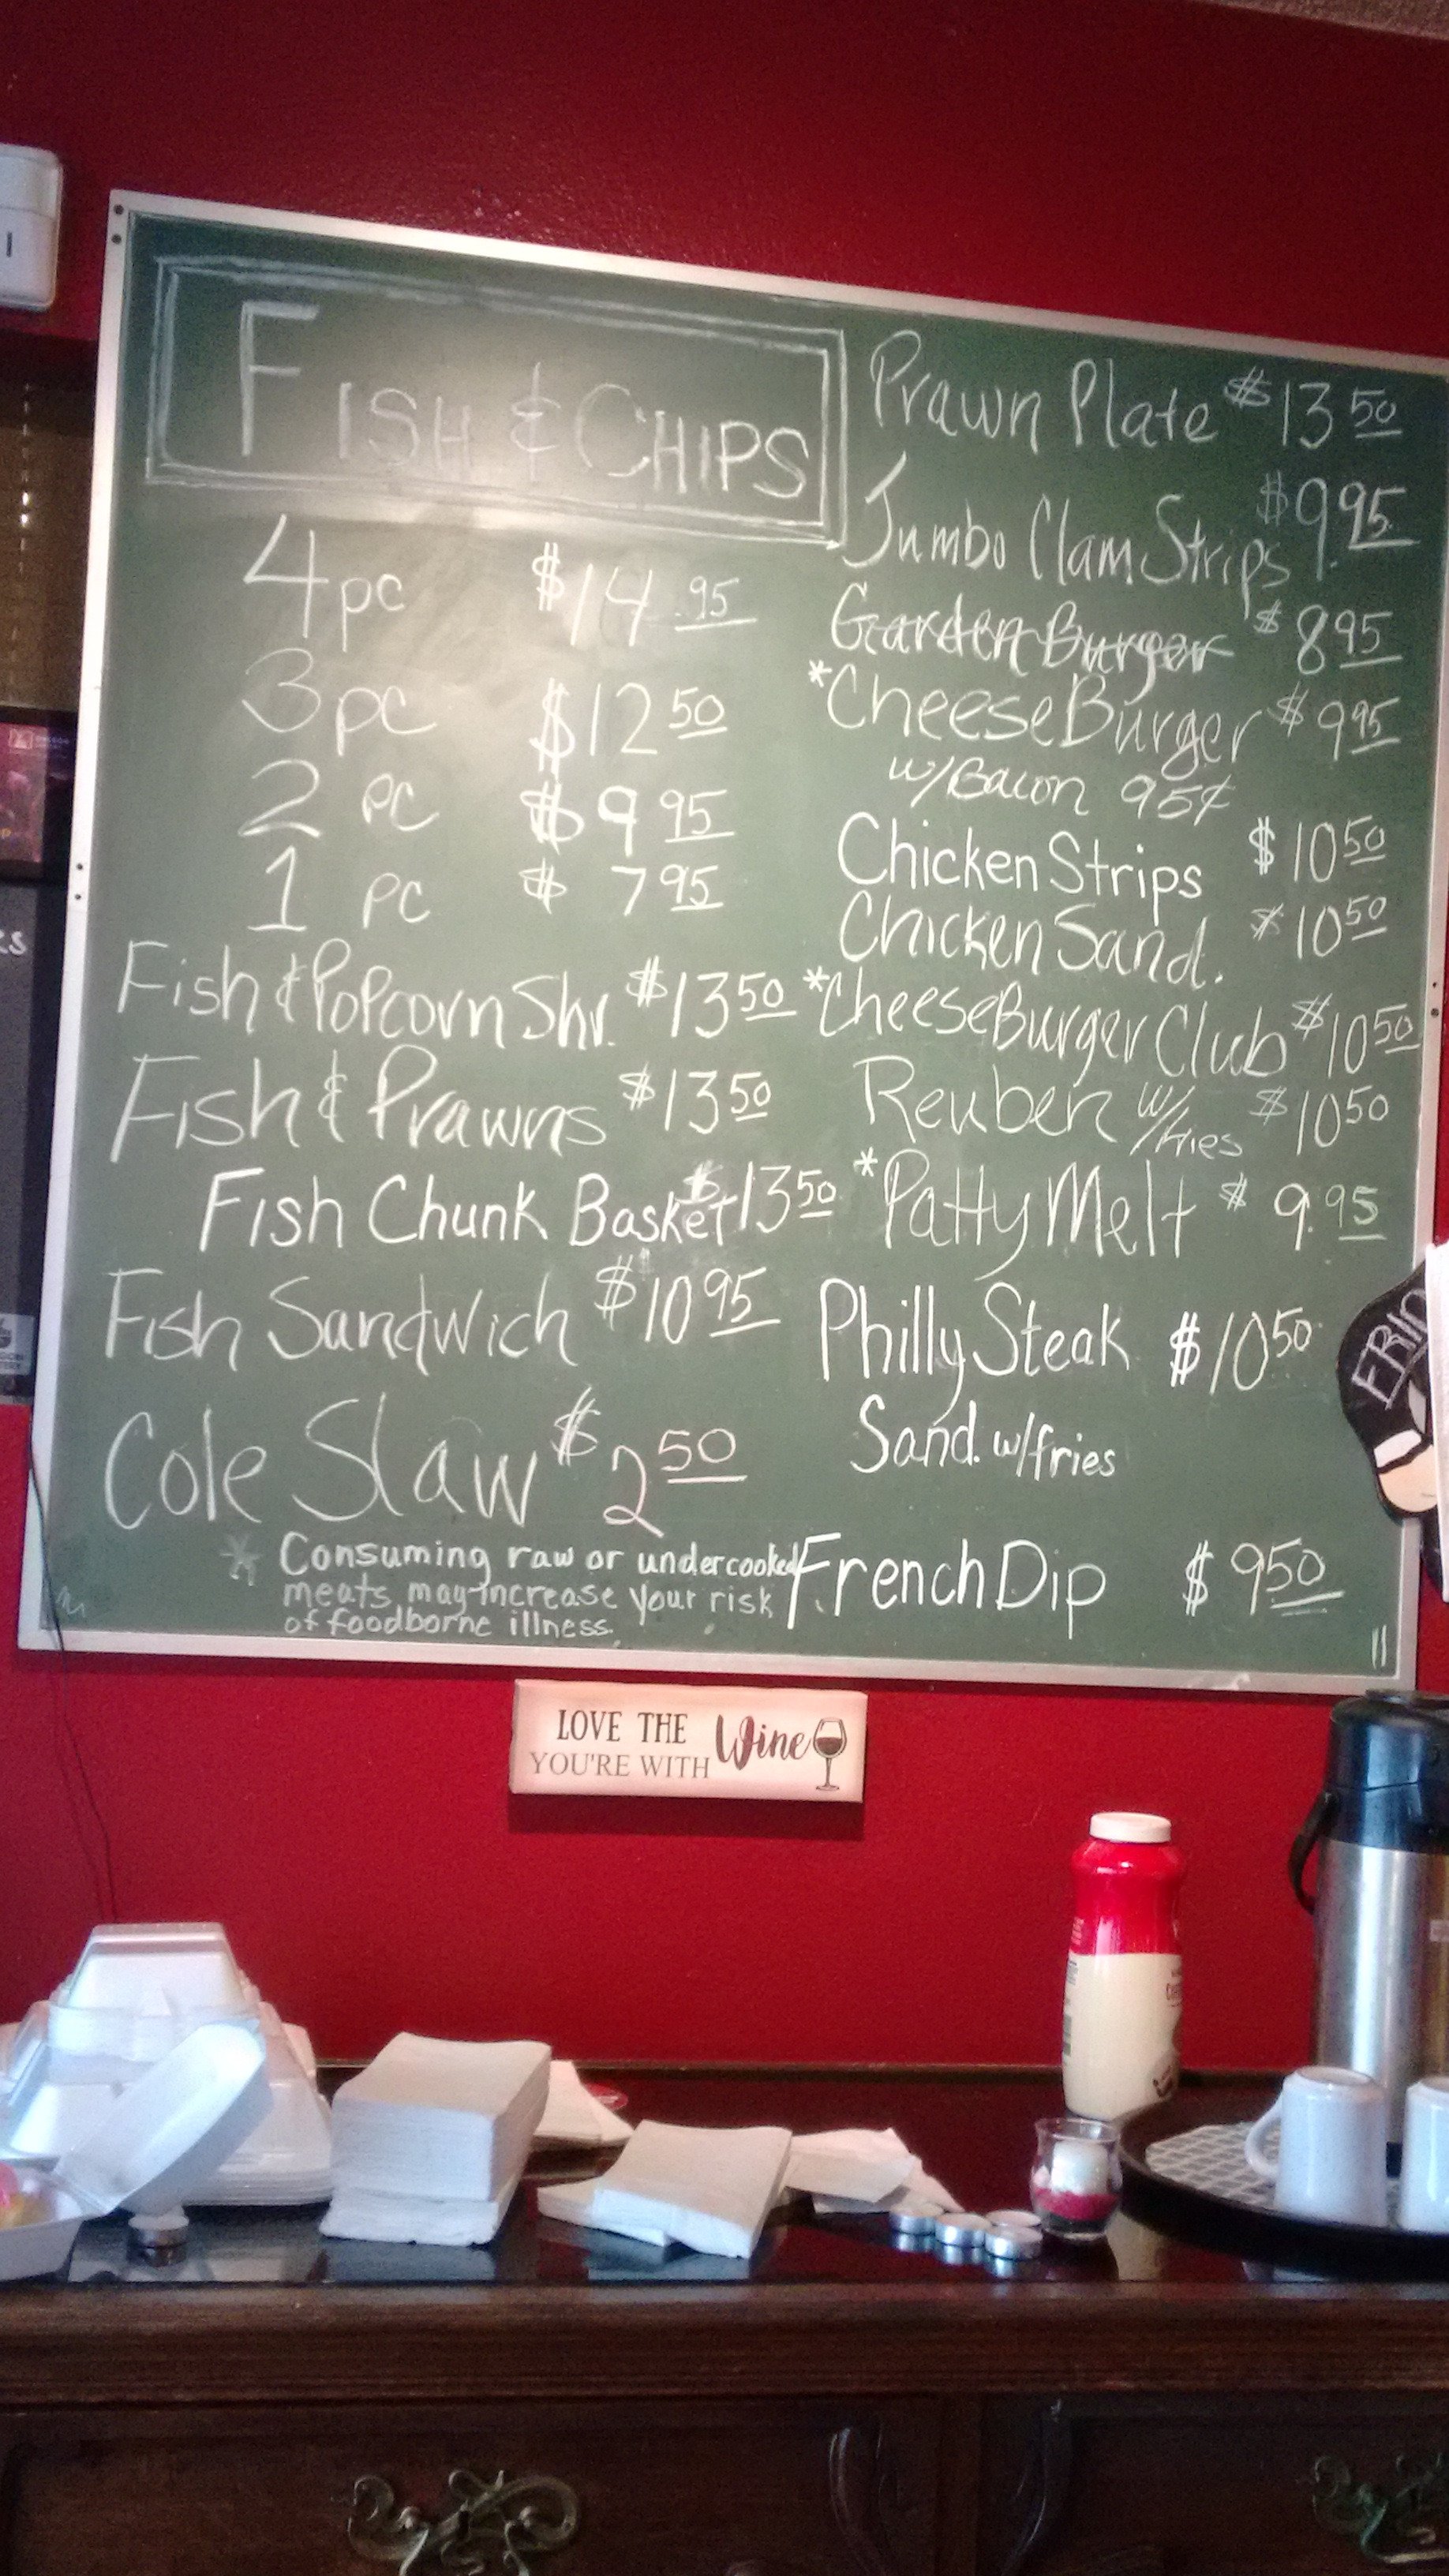 FISH & CHIPS
4pc $14.95
3pc $12 50
2 pc $9 95
1 pc $7 95
Fish & PoPcorn Shr. $13 50
Fish & Prawns $13 50
Fish Chunk Basket $13 50
Fish Sandwich $10 95
Cole Slaw $2 50
* Consuming raw or undercooked
meats may increase your risk
of foodborne illness.
Prawn Plate $13 50
Jumbo Clam Strips $9.95
Garden Burger $8 95
*CheeseBurger $9 95
w/Bacon 95¢
Chicken Strips $10 50
Chicken Sand. $10 50
*CheeseBurger Club $10 50
Reuben w/fries $10 50
*Patty Melt $9.95
Philly Steak $10 50
Sand. w/fries
French Dip $9 50
LOVE THE Wine
YOU'RE WITH